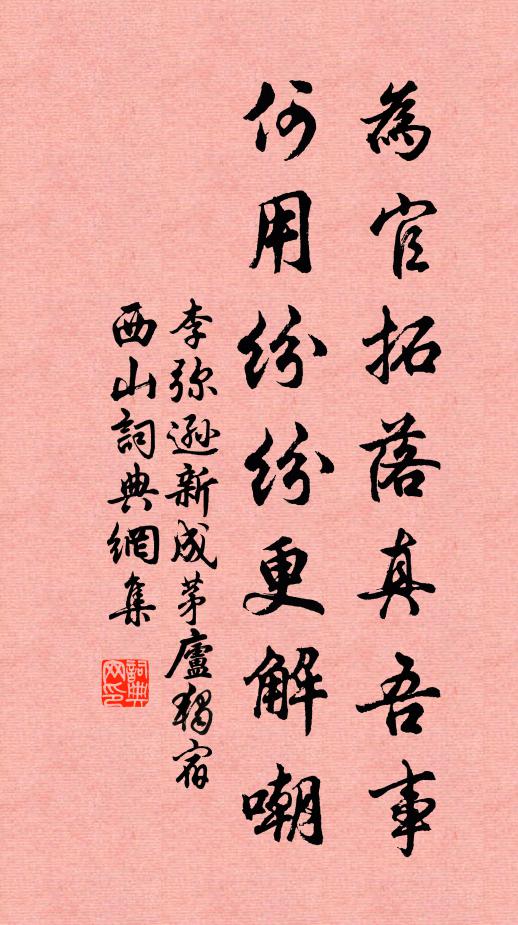 為官拓落真吾事
何用紛紛更解嘲
李弥遜新成茅廬獨宿
西山詞典網集
詞典網印